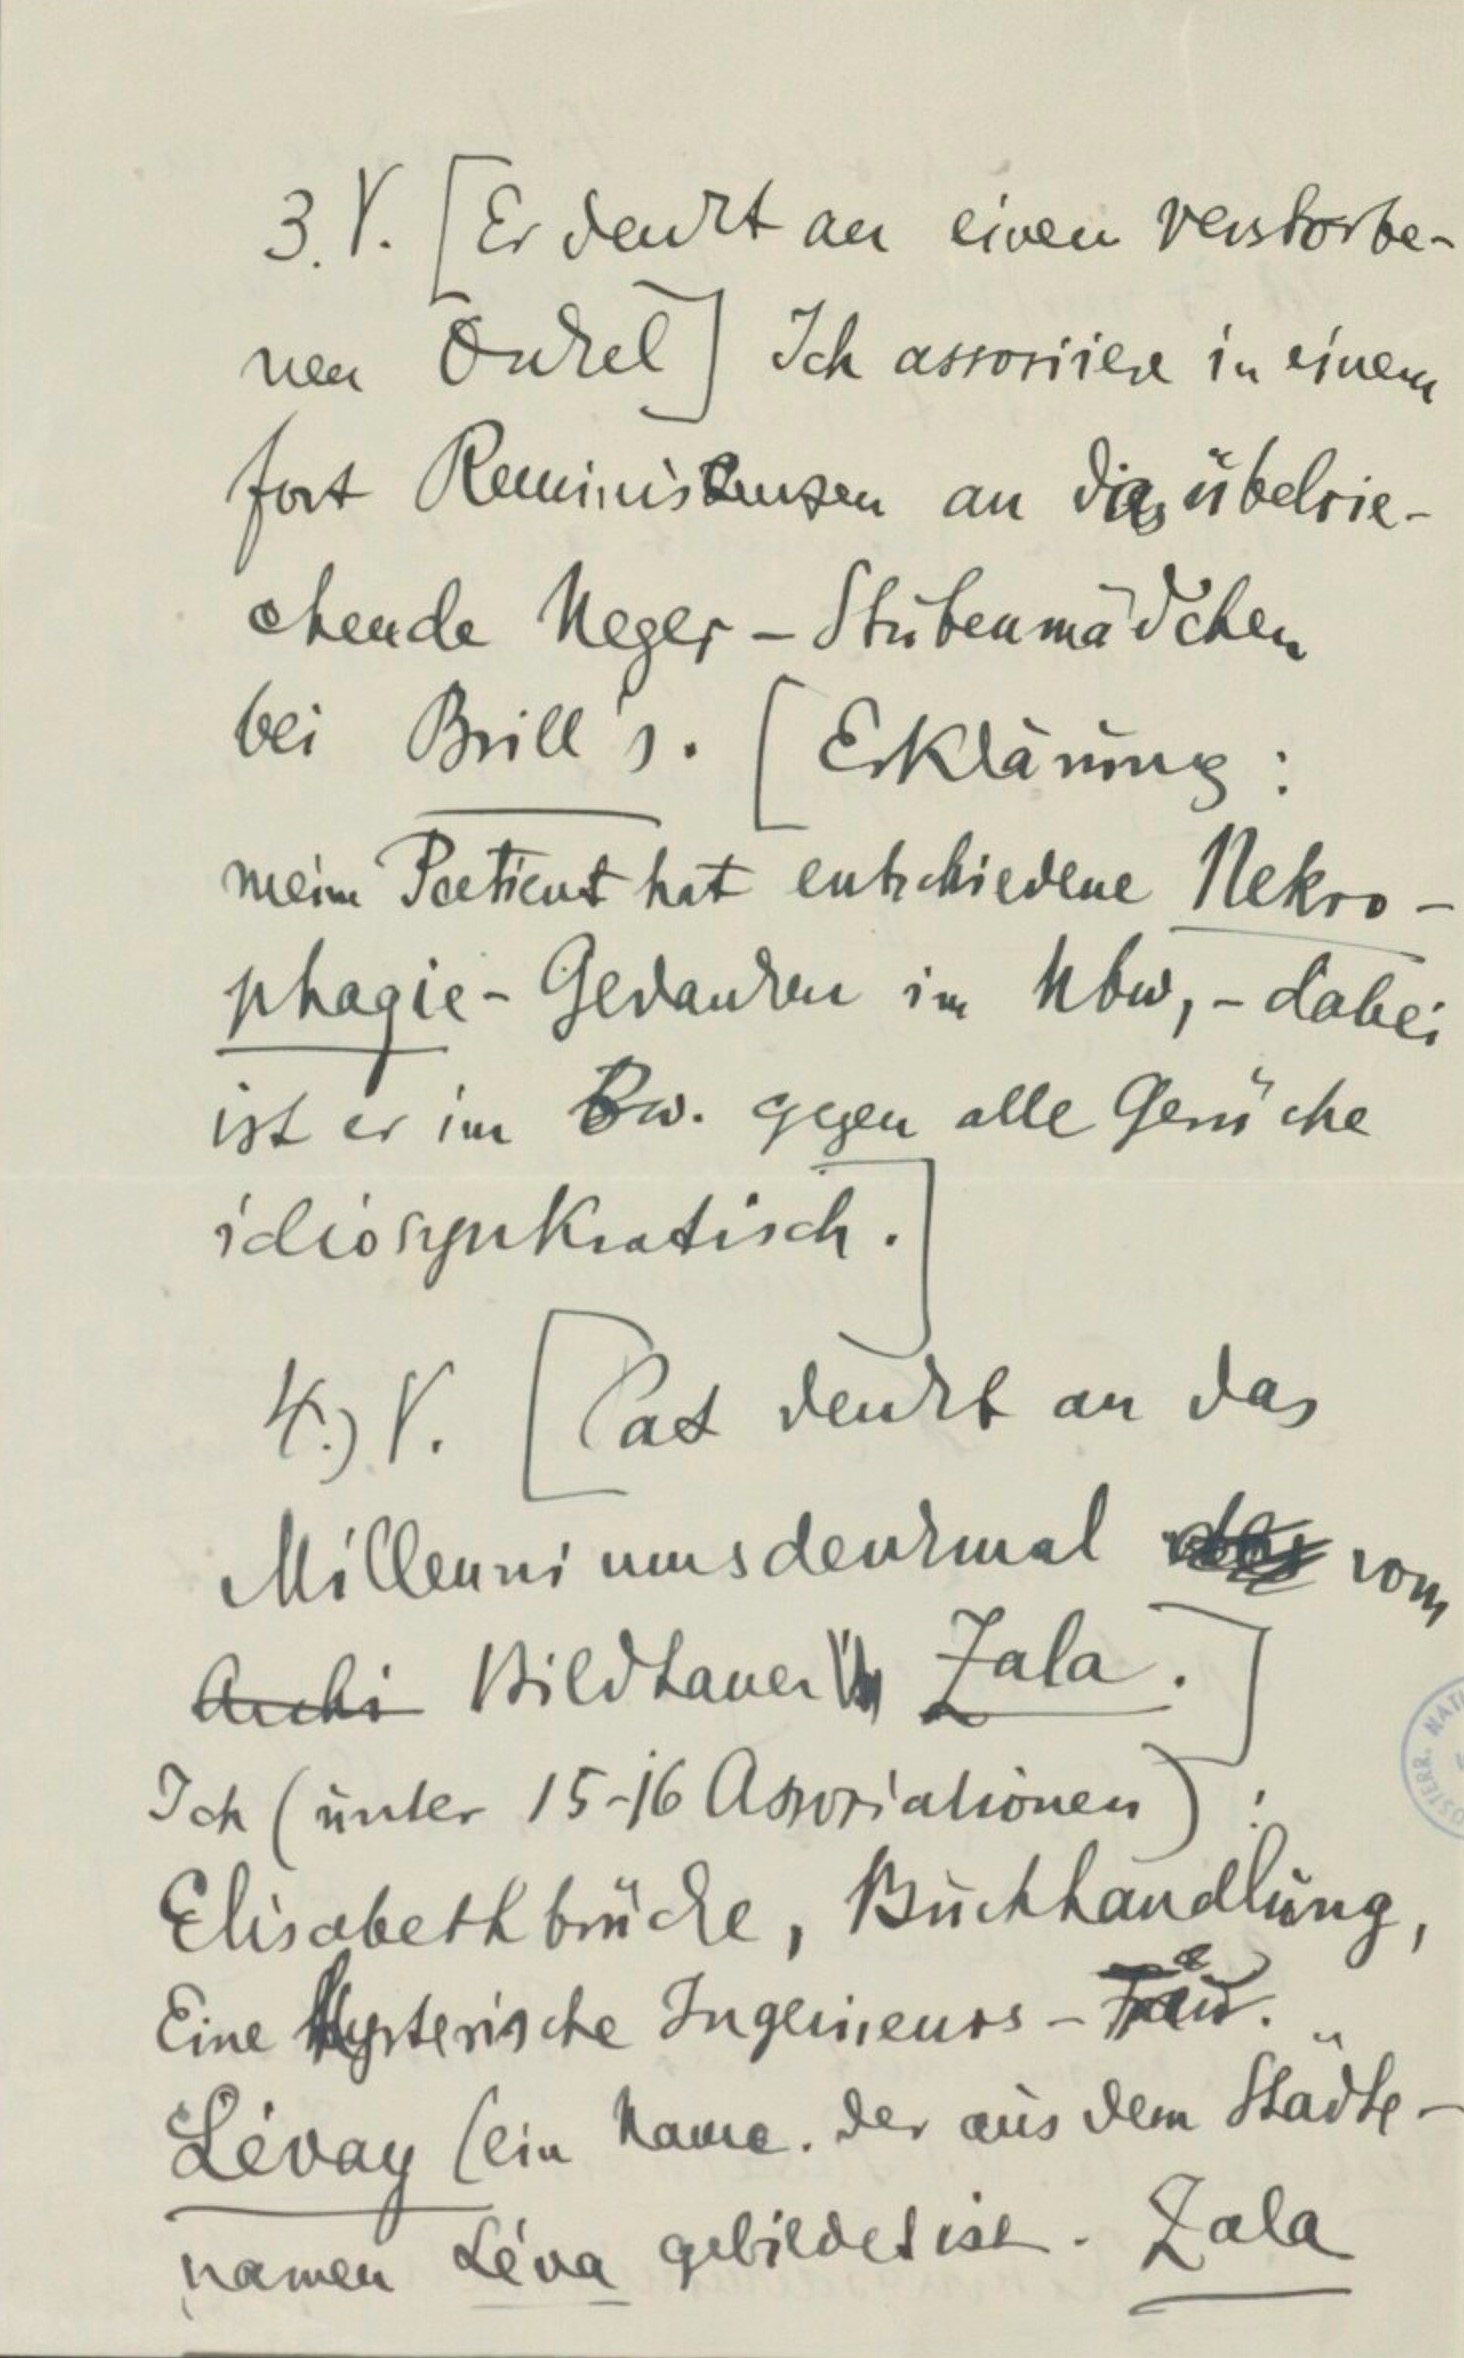 3. V. [Er denkt an einen verstorbe-
nen Onkel] Ich associiere in einem
fort Reminiszenzen an das übelrie-
chende Neger-Stubenmädchen
bei Brill's. [Erklärung:
mein Patient hat entschiedene Nekro-
phagie-Gedanken im Ubw, - dabei
ist er im Bw. gegen alle Gerüche
idiosynkratisch.]
4.) V. [Pat denkt an das
Millenniumsdenkmal vom
Archi Bildhauer Zala.]
Ich (unter 15-16 Associationen):
Elisabethbrücke, Buchhandlung,
Eine Hysterische Ingenieurs-Frau.
Lévay (ein Name. der aus dem Städte-
namen Léva gebildet ist. Zala
ÖSTERR. NATI